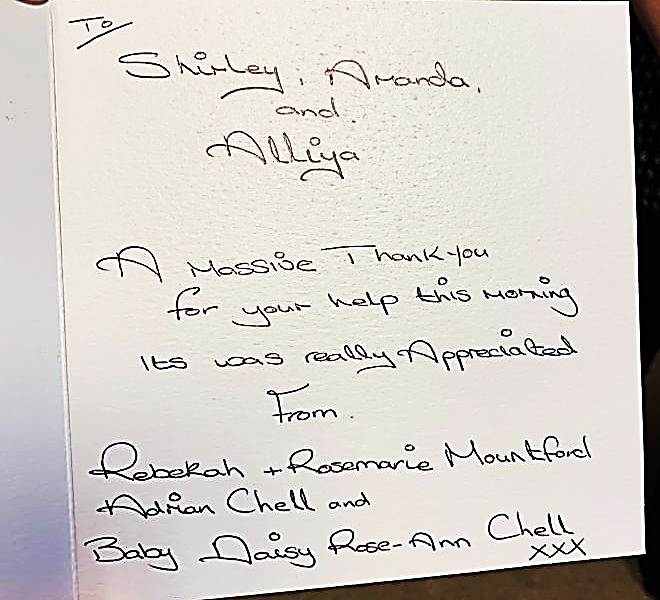 To
Shirley, Amanda,
and.
Alliya
A Massive Thankyou
for your help this morning
Its was really Appreciated
From.
Rebekah + Rosemarie Mountford
Adrian Chell and
Baby Daisy Rose-Ann Chell
xxx